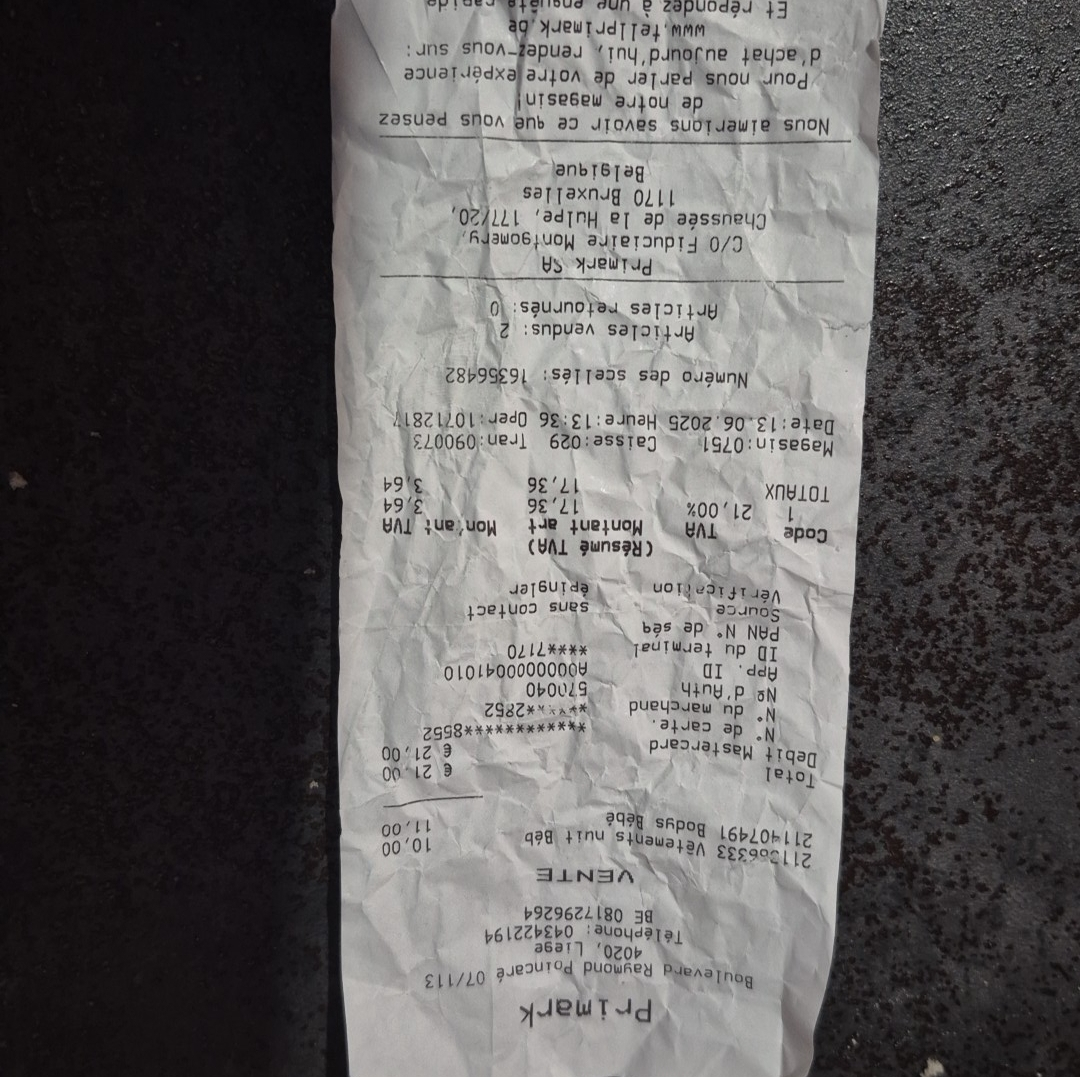 Primark
Boulevard Raymond Poincaré 07/113
4020, Liege
Téléphone: 043422194
BE 0817296264
VENTE
Vêtements nuit Béb 10,00
211407491 Bodys Bébé 11,00
Total € 21,00
Debit Mastercard € 21,00
N° de carte. ************8552
N° du marchand 2852
№ d'Auth 570040
App. ID A0000000041010
ID du terminal ****7170
PAN N° de séq
Source sans contact
Vérification épingler
(Résumé TVA)
Code TVA Montant art Montant TVA
1 21,00% 17,36 3,64
TOTAUX 17,36 3,64
Magasin:0751 Caisse:029 Tran:090073
Date:13.06.2025 Heure:13:36 Oper:10712817
Numéro des scellés: 16356482
Articles vendus: 2
Articles retournés: 0
Primark SA
C/O Fiduciaire Montgomery,
Chaussée de la Hulpe, 177/20,
1170 Bruxelles
Belgique
Nous aimerions savoir ce que vous pensez
de notre magasin!
Pour nous parler de votre expérience
d'achat aujourd'hui, rendez-vous sur:
www.tellprimark.be
Et répondez à une enquête rapide